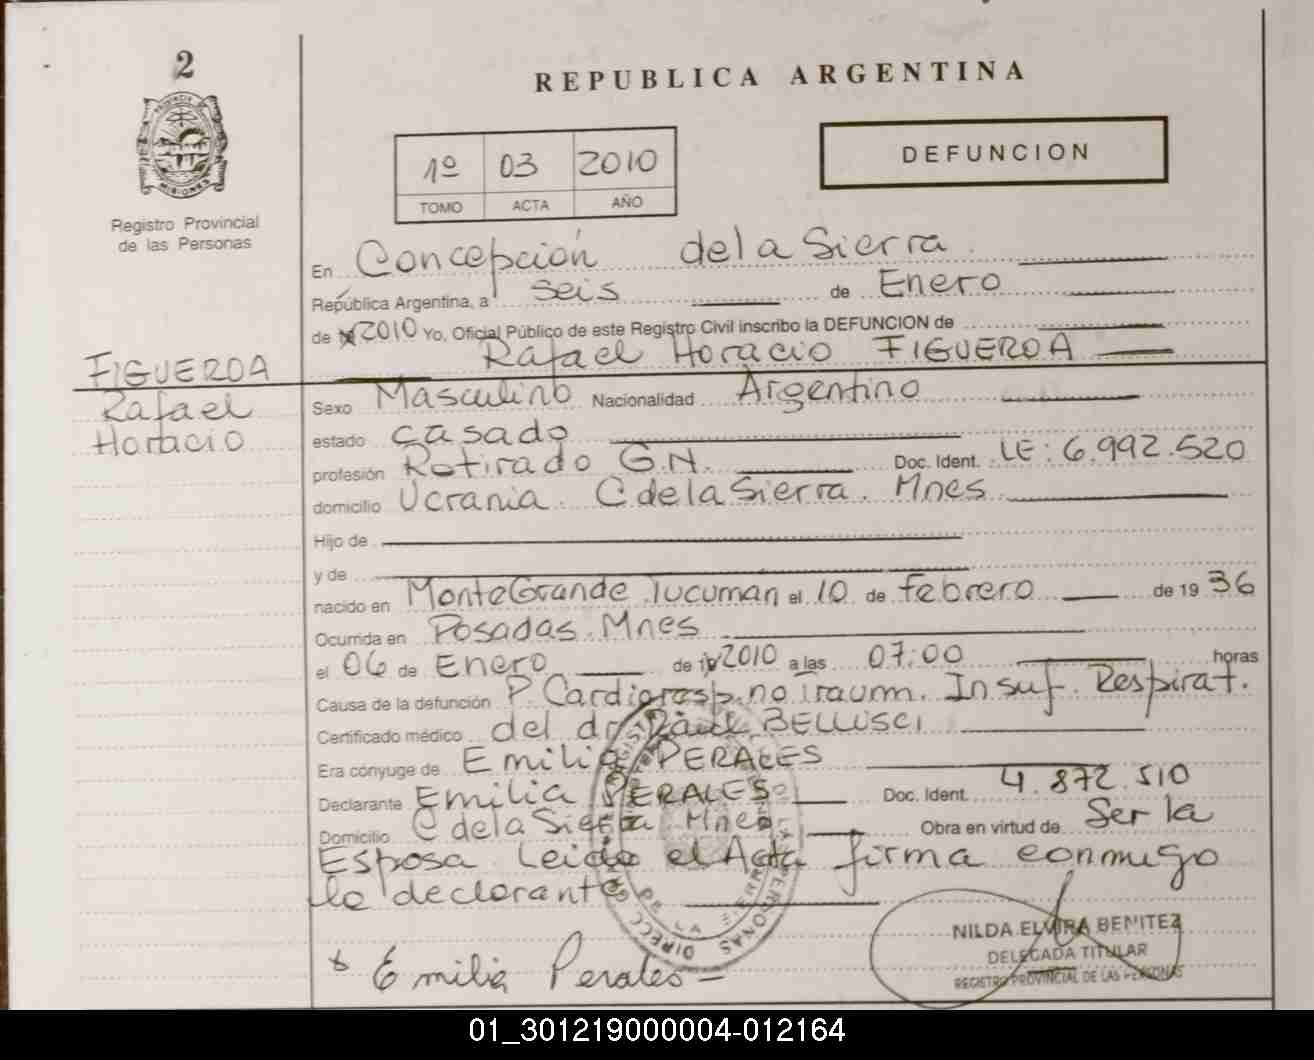 2
REPUBLICA ARGENTINA
PROVINCIA DE MISIONES
Registro Provincial
de las Personas
1º 03 2010
TOMO ACTA AÑO
DEFUNCION
En Concepción de la Sierra
República Argentina, a seis de Enero
de 2010 Yo, Oficial Público de este Registro Civil inscribo la DEFUNCION de
Rafael Horacio FIGUEROA
FIGUEROA
Rafael
Horacio
Sexo Masculino Nacionalidad Argentino
estado casado
profesión Retirado G.N. Doc. Ident. LE: 6.992.520
domicilio Ucrania. C de la Sierra. Mnes
Hijo de
y de
nacido en Monte Grande Tucuman el 10 de febrero de 19 36
Ocurrida en Posadas. Mnes
el 06 de Enero de 2010 a las 07:00 horas
Causa de la defunción P Cardioresp. no traum. Insuf. Respirat.
Certificado médico del dr. BELLUSCI
Era cónyuge de Emilia PERALES
Declarante EMILIA PERALES Doc. Ident. 4.872.510
Domicilio C de la Sierra Mnes Obra en virtud de Ser la
Esposa Leida el Acta firma conmigo
la declarante
* Emilia Perales
NILDA ELVIRA BENITEZ
DELEGADA TITULAR
REGISTRO PROVINCIAL DE LAS PERSONAS
01_301219000004-012164